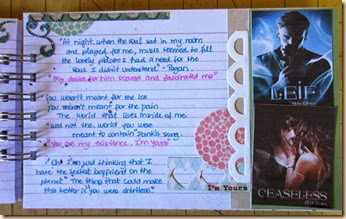 "At night, when the soul sat in my room
and played for me, music seemed to fill
the lonely places I had a need for the
soul I didn't understand." - Pagan.
"My desire for him scared and fascinated me"
You weren't meant for the ice
You weren't meant for the pain
The world that lives inside of me
was not the world you were
meant to contain" Dank's song.
"You are my existence. I'm yours"
"Oh, I'm just thinking that I
have the sexiest boyfriend on the
planet." The thing that could make
this better is you were shirtless."
I'm Yours
LEIF
CEASELESS